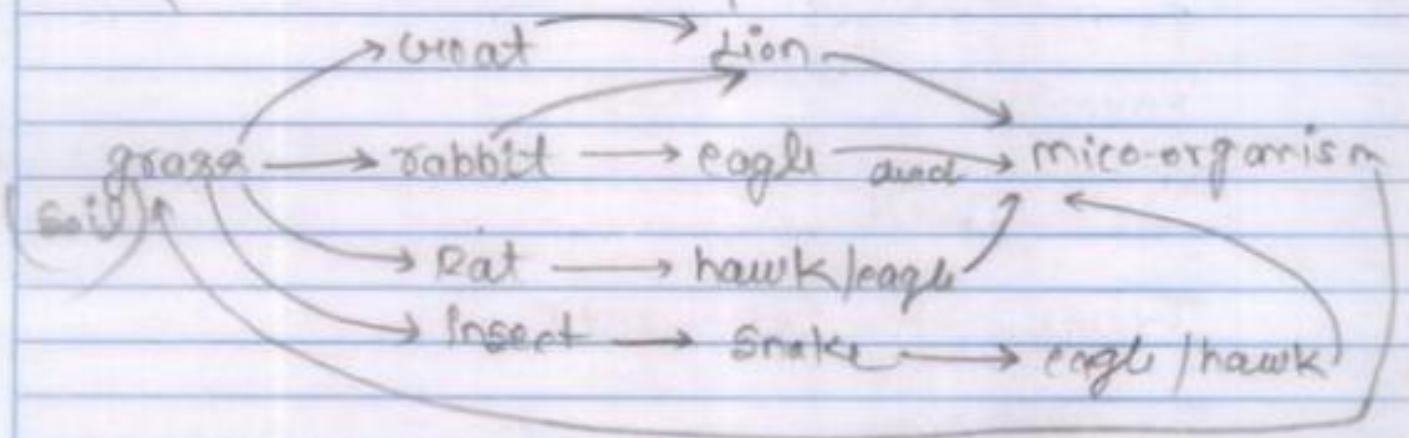 Goat → Lion
grass → rabbit → eagle dead → mico-organism
(soil)
Rat → hawk/eagle
Insect → Snake → eagle/hawk